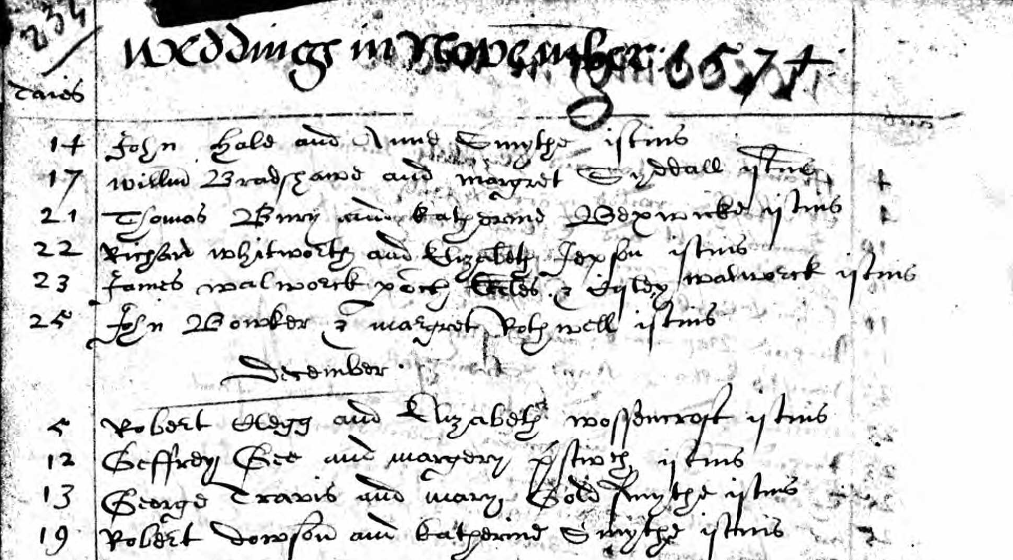 234
Weddings in November 1574
Daies
14 John Hale and Anne Smythe istius
17 Willm Bradshawe and Margret Syddall istius
21 Thomas Bury and Katherine Bexwicke istius
22 Richard Whitworth and Elizabeth Jepson istius
23 James Walworck Eccles & Walworck istius
25 John Bowker & Margret Rothwell istius
December
5 Robert Clegg and Elizabeth Wossencroft istius
12 Geffrey Gee and Margery istius
13 George Travis and Mary Goldsmythe istius
19 Robert Dowson and Katherine Smythe istius